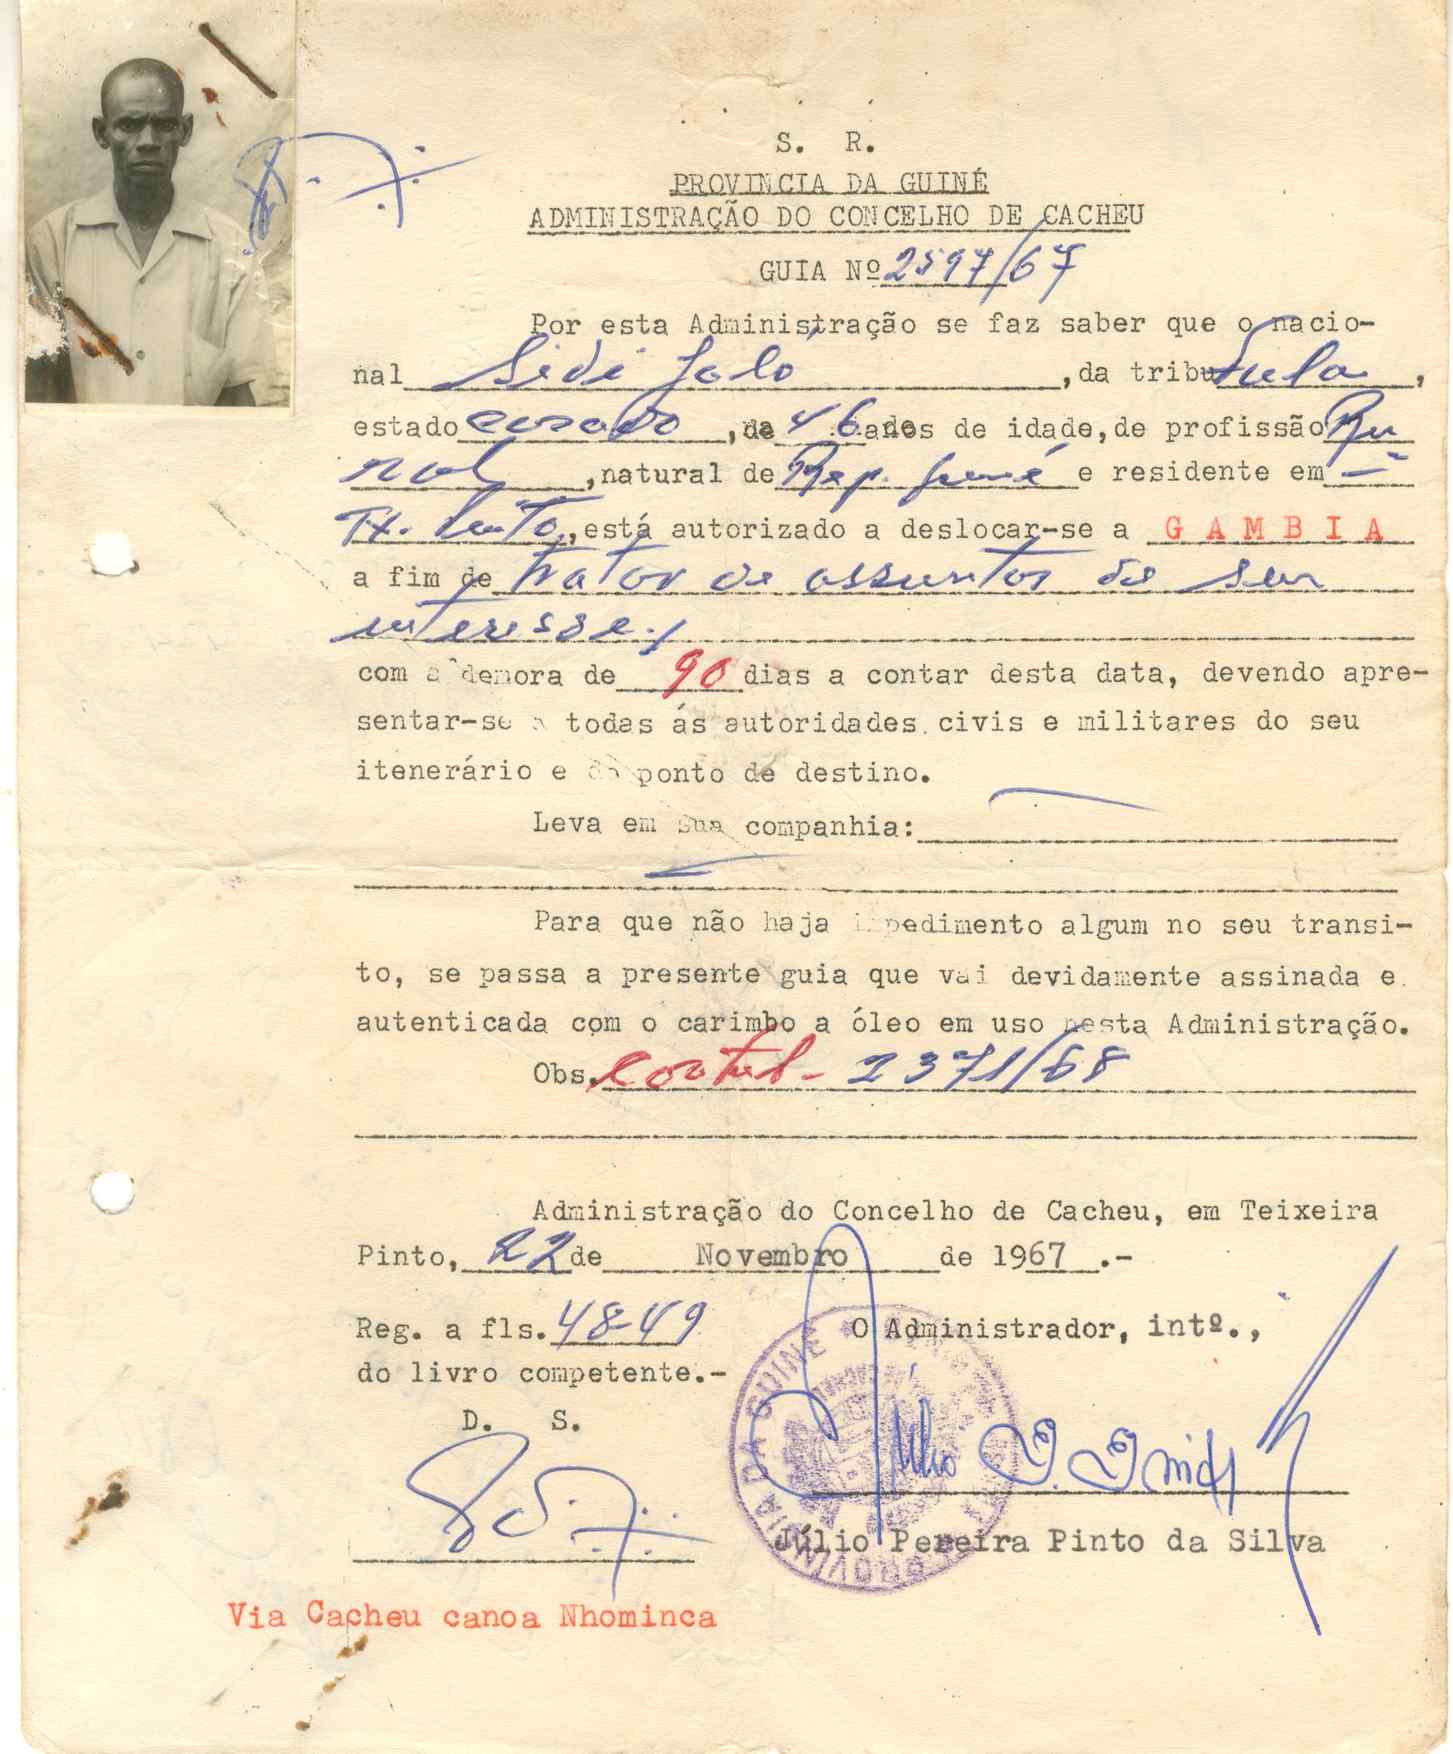 S. R.
PROVINCIA DA GUINÉ
ADMINISTRAÇÃO DO CONCELHO DE CACHEU
GUIA Nº 2597/67
Por esta Administração se faz saber que o nacio-
nal Sidi Jaló, da tribu Fula,
estado casado, de 46 anos de idade, de profissão Ru
ral, natural de Rep. Guiné e residente em -
Tx. Pinto, está autorizado a deslocar-se a GAMBIA
a fim de tratar de assuntos de seu
interesse./
com a demora de 90 dias a contar desta data, devendo apre-
sentar-se a todas as autoridades civis e militares do seu
itenerário e do ponto de destino.
Leva em sua companhia:
Para que não haja impedimento algum no seu transi-
to, se passa a presente guia que vai devidamente assinada e
autenticada com o carimbo a óleo em uso nesta Administração.
Obs. 2371/68
Administração do Concelho de Cacheu, em Teixeira
Pinto, 22 de Novembro de 1967.-
Reg. a fls. 48-49
O Administrador, intº.,
do livro competente.-
D. S.
PROVINCIA DA GUINÉ
Júlio Pereira Pinto da Silva
Via Cacheu canoa Nhominca